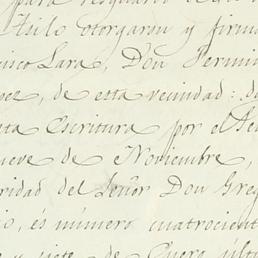 para resguardo
Asi lo otorgaron y firma
nico Lara, Don Fermin
pez, de esta vecindad: d
ta Escritura por el
ueve de Noviembre,
ridad del Señor Don Greg
io, és número cuatrocient
y siete de Enero últi